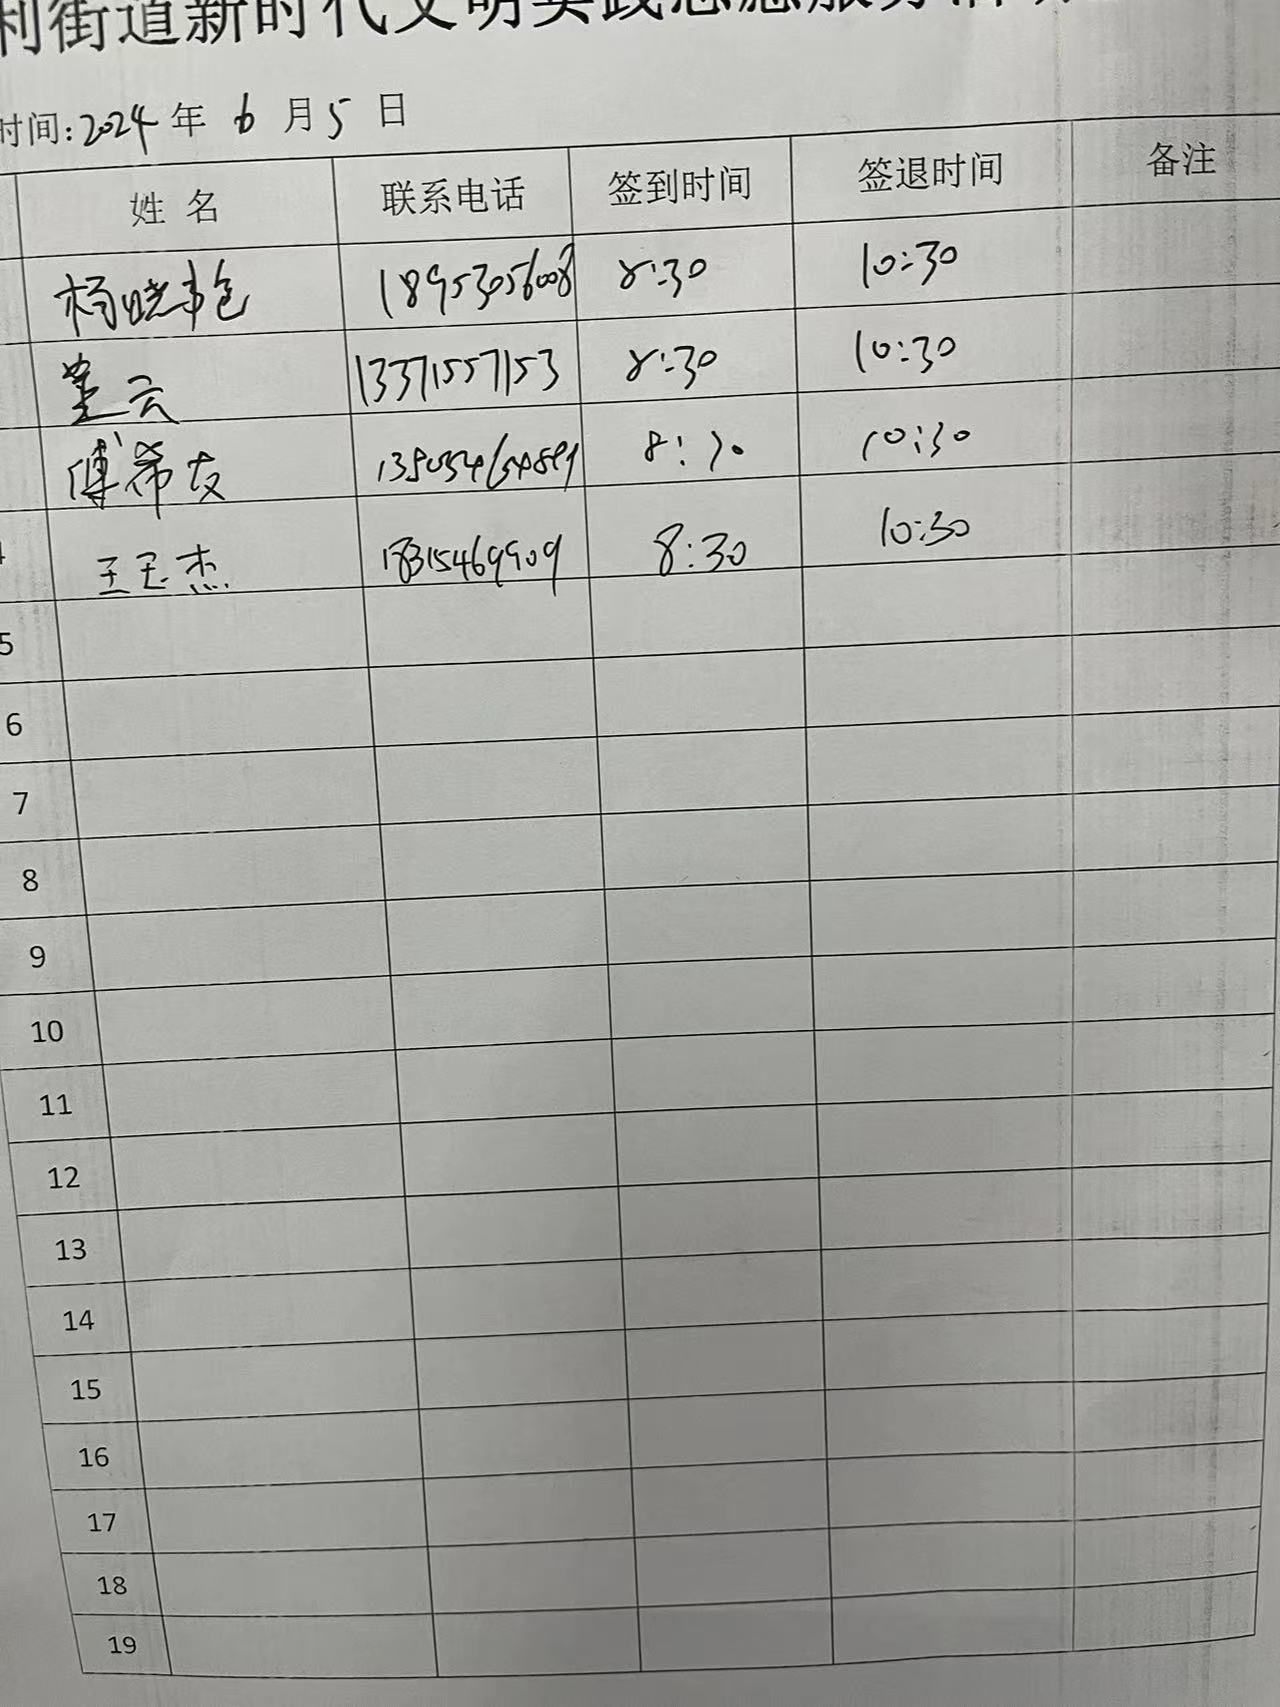 利街道新时代文明实践志愿服务活动
时间:2024年 6月5日
姓 名 联系电话 签到时间 签退时间 备注
杨晓艳 18953056008 8:30 10:30
董云 13371557153 8:30 10:30
傅希友 8:30 10:30
4 王玉杰 18315469909 8:30 10:30
5
6
7
8
9
10
11
12
13
14
15
16
17
18
19